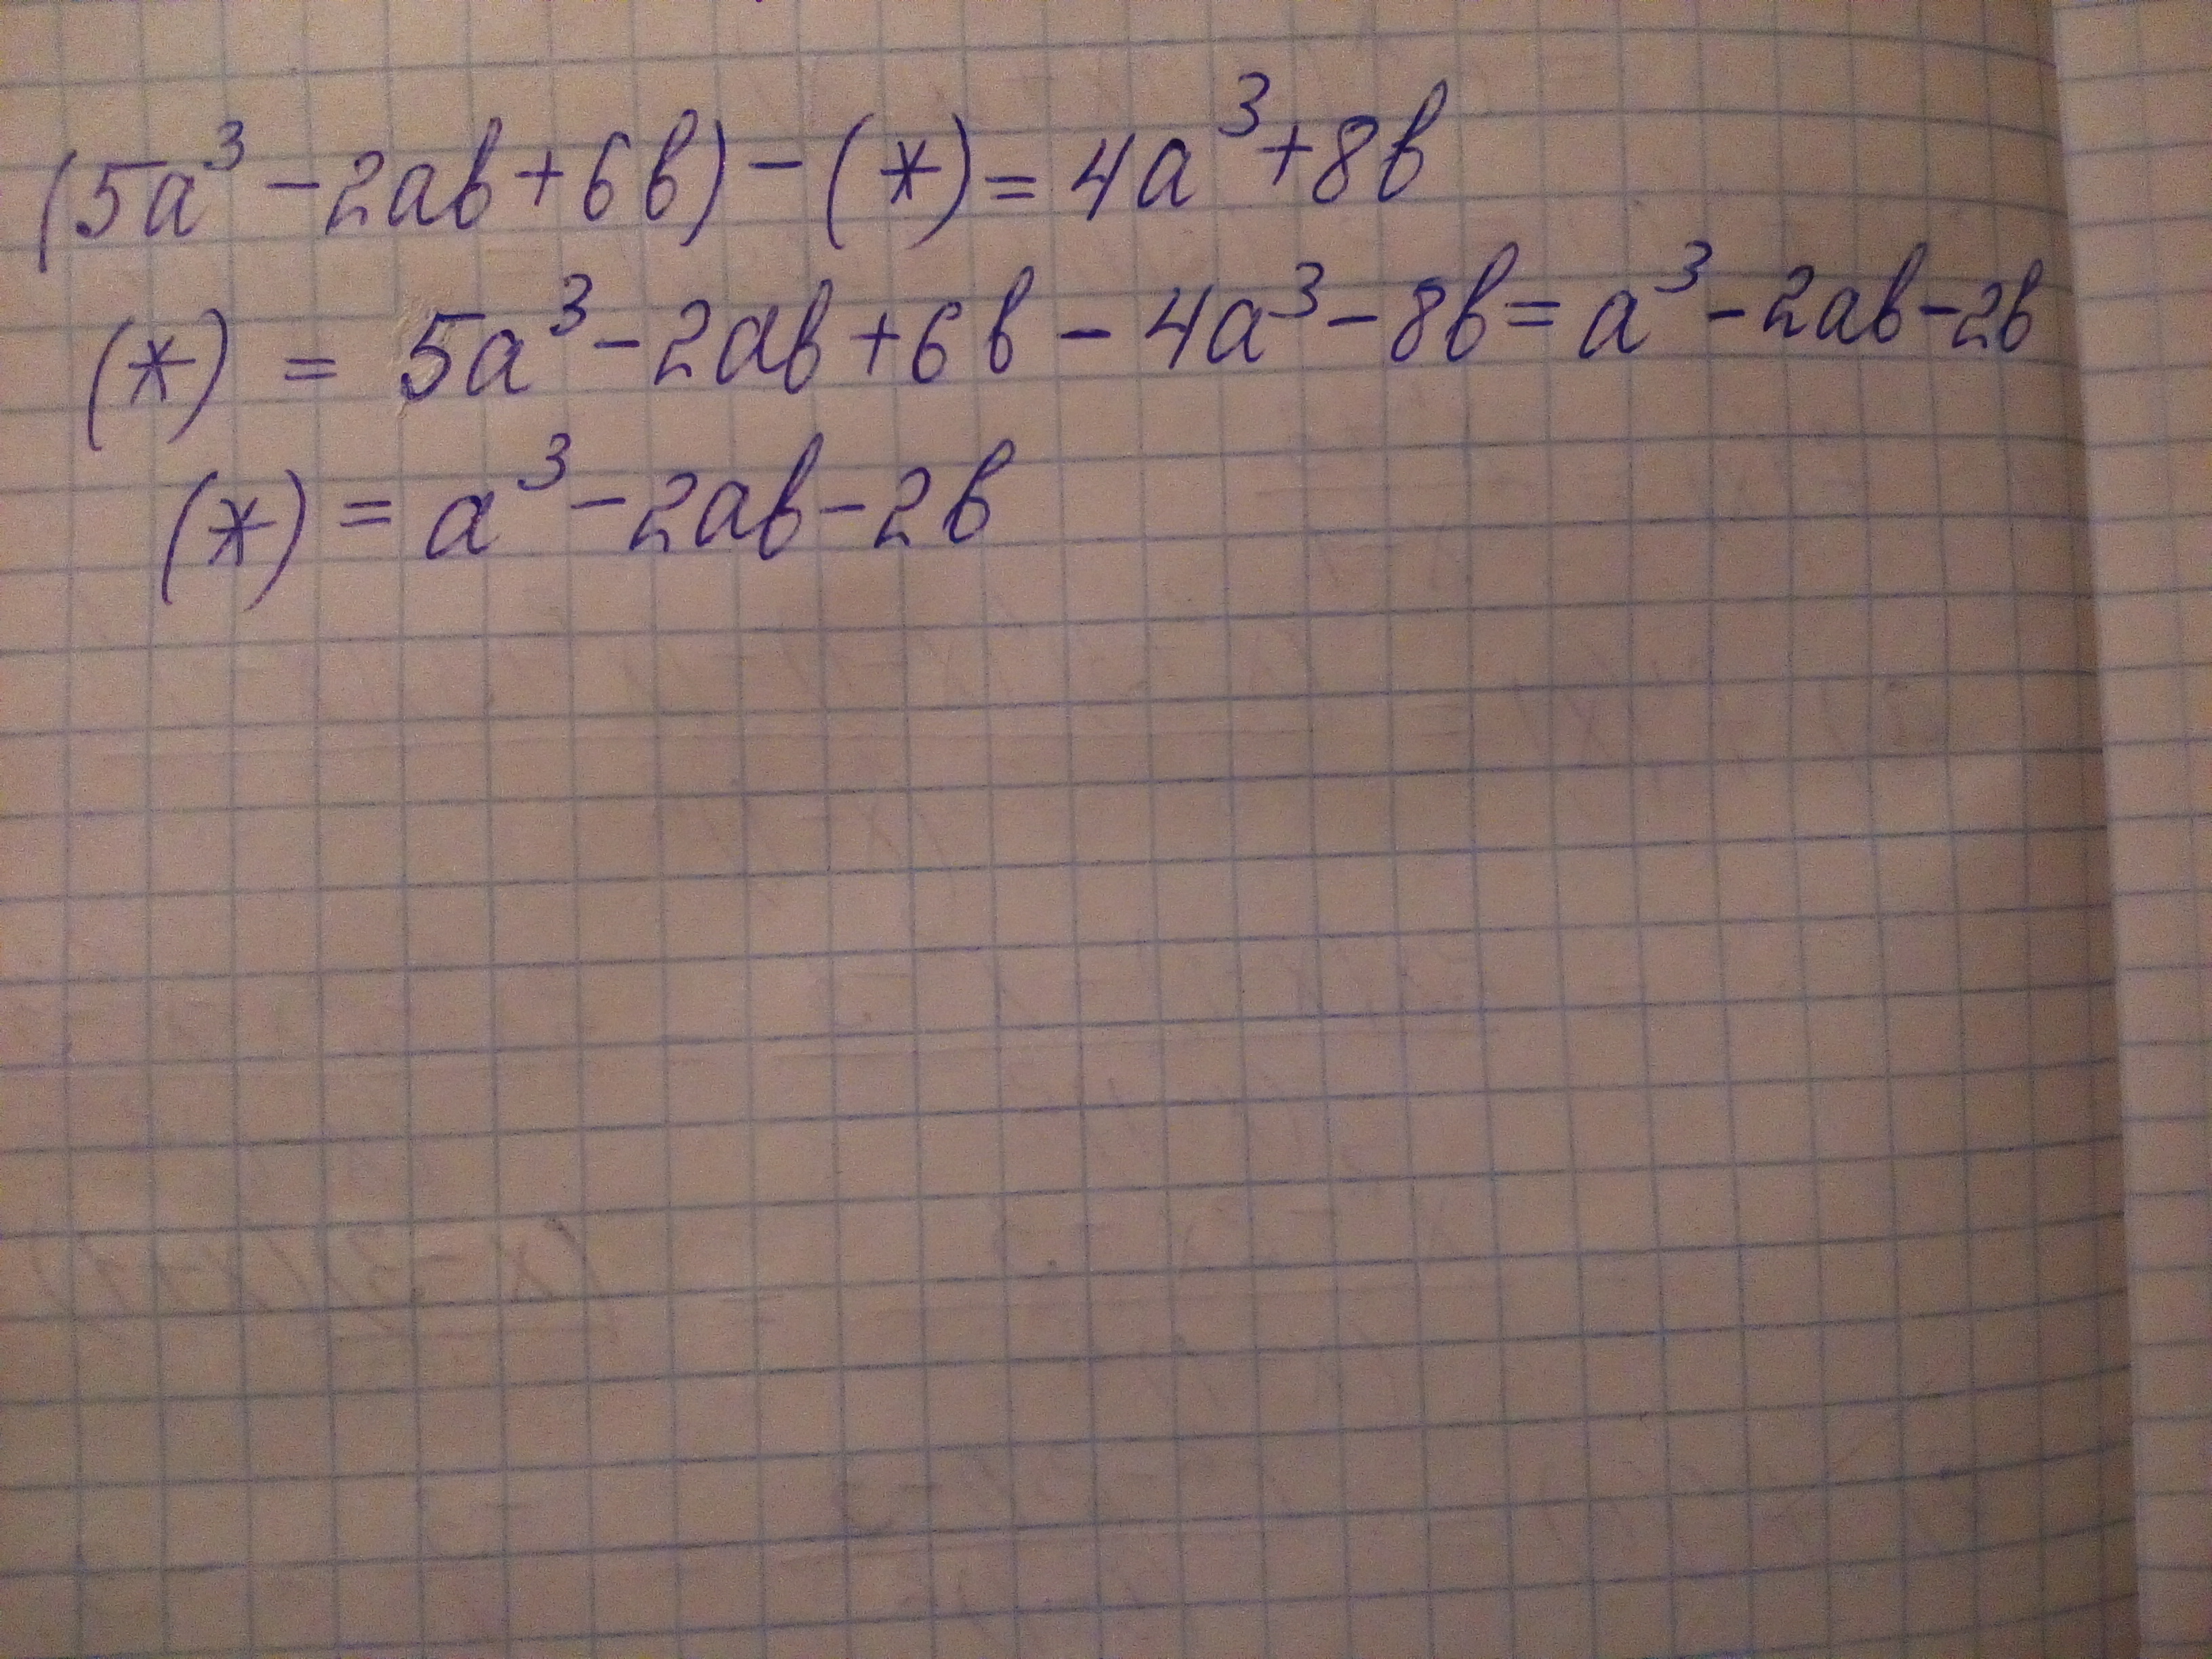 (5a³ - 2ab + 6b) - (*) = 4a³ + 8b
(*) = 5a³ - 2ab + 6b - 4a³ - 8b = a³ - 2ab - 2b
(*) = a³ - 2ab - 2b